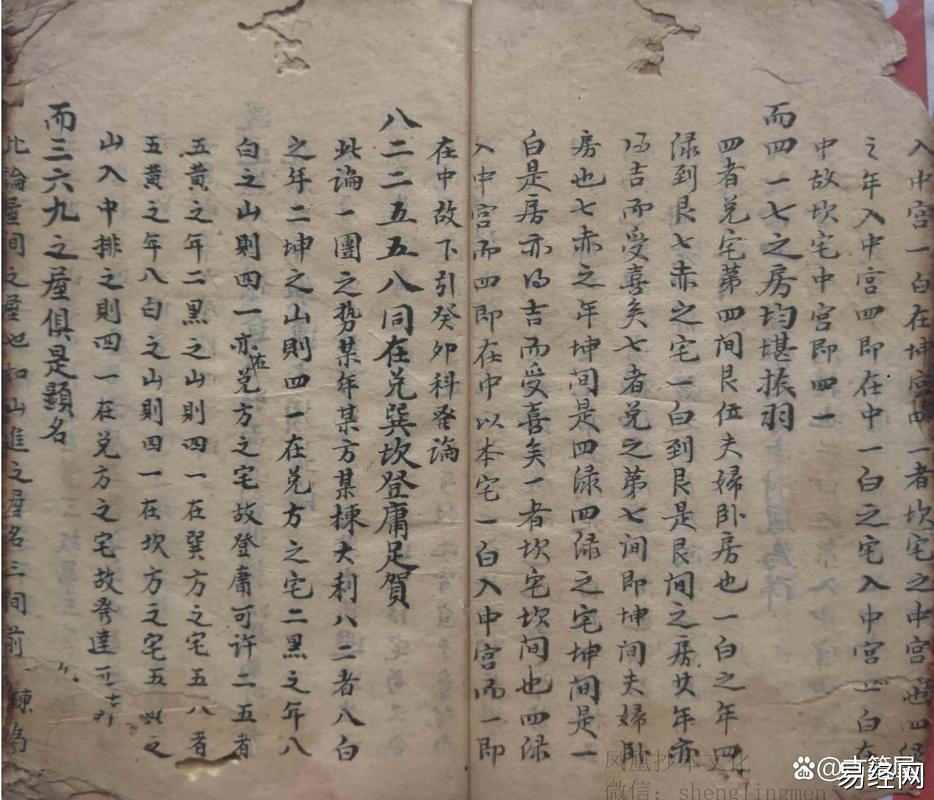 入中宫一白在坤宫四一者坎宅之中宫也四绿
之年入中宫四即在中一白之宅入中宫一白在
中故坎宅中宫即四一
而四一七之房均堪振羽
四者兑宅第四间艮位夫婦卧房也一白之年四
绿到艮七赤之宅一白到艮是艮间之房其年亦
得吉而受喜矣七者兑之第七间即坤间夫婦卧
房也七赤之年坤间是四绿四绿之宅坤间是一
白是房亦得吉而受喜矣一者坎宅坎间也四绿
入中宫而四即在中以本宅一白入中宫而一即
在中故下引癸卯科發論
八二二五五八同在兑巽坎登庸足賀
此論一團之势某年某方某棟大利八二者八白
之年二坤之山則四一在兑方之宅二黑之年八
白之山則四一亦在兑方之宅故登庸可许二五者
五黄之年二黑之山則四一在巽方之宅五八者
五黄之年八白之山則四一在坎方之宅五黄之
山入中排之則四一在兑方之宅故發達可
而三六九之屋俱是顯名
此論屋间之屋也如山進之屋名三间前棟為
凤凰抄本文化
微信：shenglingmen
@古籍局
易经网